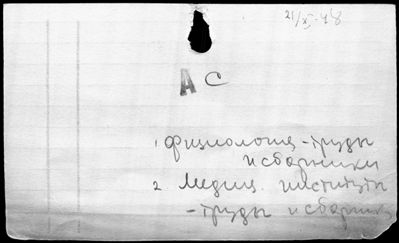 21/XI-48
А С
1 Физиология - труды
и сборники
2 Медиц. институты
- труды и сборник